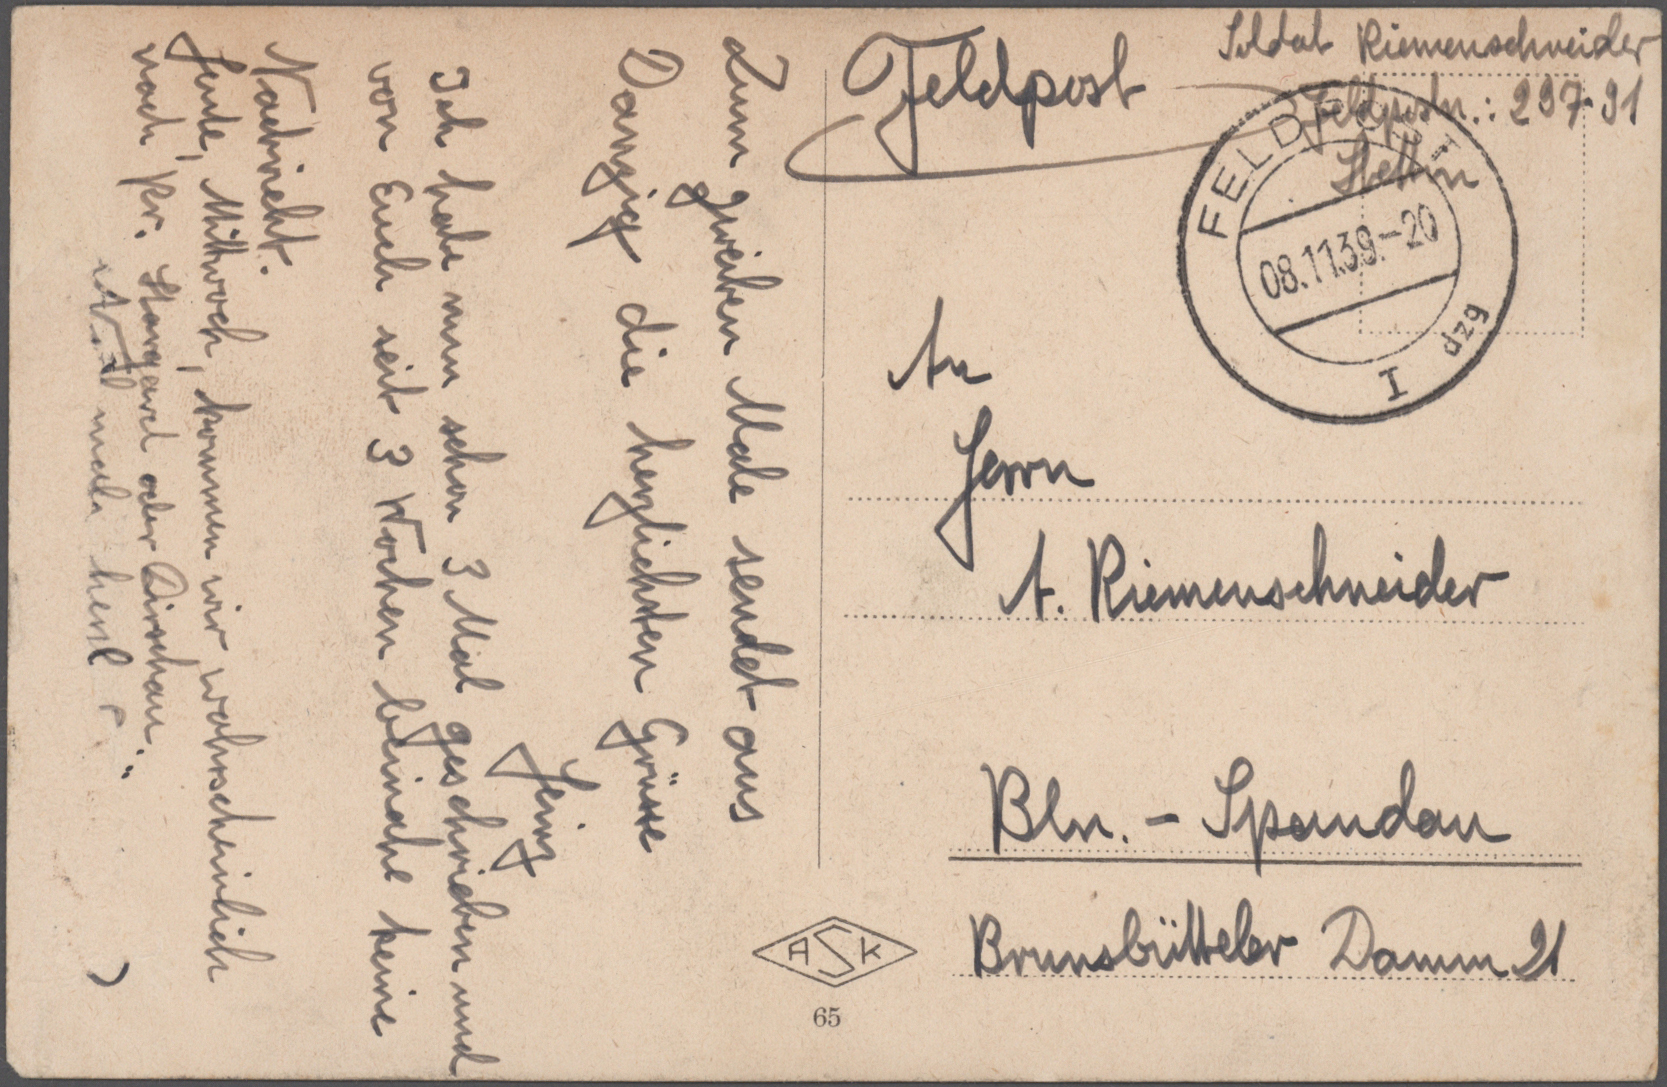 Feldpost
Soldat Riemenschneider
Feldpostn.: 297·91
Stettin
FELDPOST
08.11.39.-20
I
dzg
An
Herrn
A. Riemenschneider
Bln. - Spandau
Brunsbütteler Damm 21
ASK
65
Zum zweiten Male sendet aus
Danzig die herzlichsten Grüsse
Heinz
Ich habe nun schon 3 Mal geschrieben und
von Euch seit 3 Wochen beinahe keine
Nachricht.
Heute, Mittwoch, kommen wir wahrscheinlich
nach Pr. Stargard oder Dirschau.